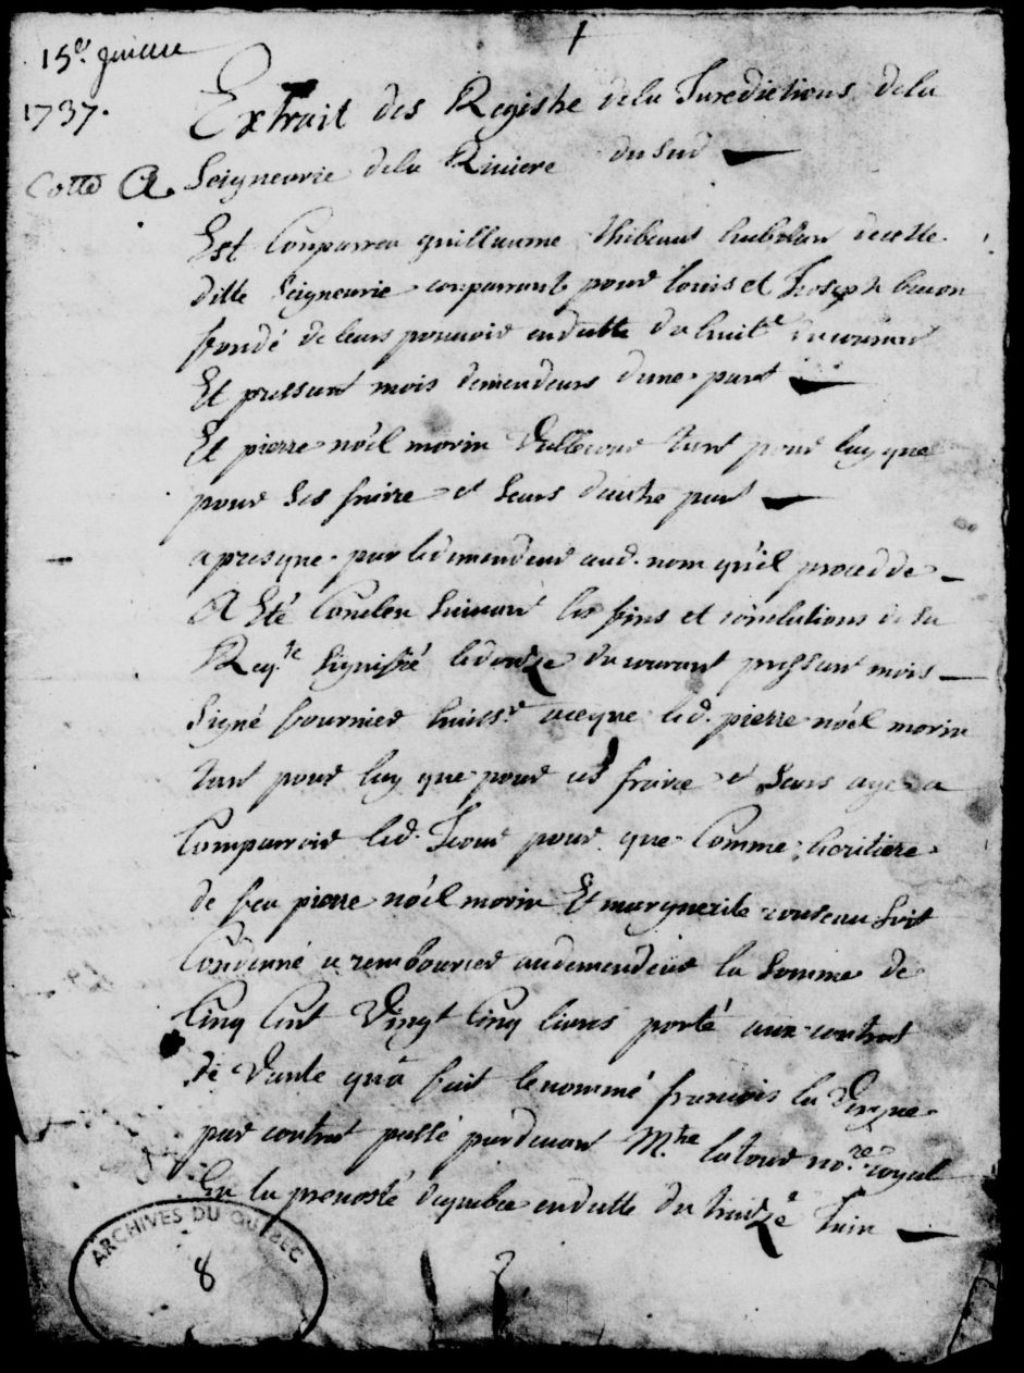 1
15e. Juillet
1737.
Extrait des Registre dela Juredictions dela
Cotté A. Seigneurie dela Riviere du Sud
Est Comparru guillaume Thibaut habitan decette
ditte Seigneurie comparrant pour Louis et Joseph
fondé de leurs pouvoir endatte du huite. du courant
Et pressant mois demendeurs dune part
Et pierre noël morin Vallecour tant pour luy que
pour Ses fraire et Seurs dautre part
apresque par ledemendeur aud. nom qu'il procedde
A Eté Conclu Suivant les fins et conclutions de Sa
Reqte. Signiffié ledouze du courant pressant mois
Signé fournier huissr. aceque led. pierre noël morin
tant pour luy que pour ces fraire et Seurs aye a
Comparroir led. Jour pour que Comme heritiere
de feu pierre noël morin Et marguerite rouseau Soit
Condenné a rembourser audemendeur la Somme de
Cinq Cent Vingt Cinq livres porté aux contrat
de Vante qu'a fait lenommé francois la Vergne
par contrat passé pardevant Mtre. latour nore. royal
En la prevosté dequebec endatte du treize Juin
2
ARCHIVES DU QUÉBEC
8